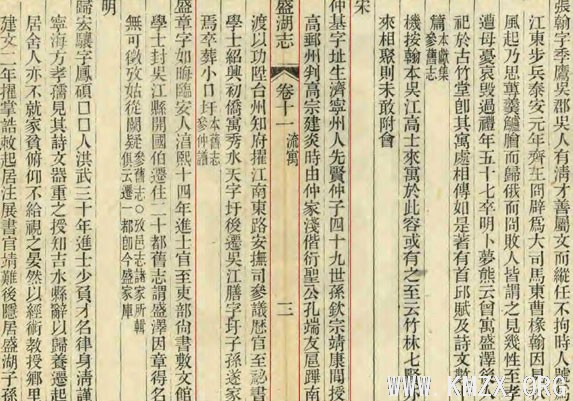 張翰字季鷹吳郡吳人有清才善屬文而縱任不拘時人號
江東步兵泰安元年齊王冏辟為大司馬東曹掾翰因見
風起乃思蓴羹鱸膾而歸俄而冏敗人皆謂之見幾性至孝
遭母憂哀毀過禮年五十七卒明卜夢熊云曾寓盛澤後
祀於古竹堂卽其寓處相傳如是著有首邱賦及詩文數
篇本獻集參舊志
機按翰本吳江高士來寓於此容或有之至云竹林七賢亦
來相聚則未敢附會
宋
仲基字址生濟寧州人先賢仲子四十九世孫欽宗靖康間授
高郵州判高宗建炎時由仲家淺偕衍聖公孔端友扈蹕南
盛湖志 卷十一 流寓 三
渡以功陞台州知府擢江南東路安撫司參議歷官至祕書
學士紹興初僑寓秀水天字圩後遷吳江膳字圩子孫遂家
焉卒葬小口圩本舊志參仲譜
盛章字如晦臨安人淳熙十四年進士官至吏部尚書敷文館
學士封吳江縣開國伯遷住二十都舊志謂盛澤因章得名
無可徵攷姑從闕疑參舊志○攷邑志諸家所輯俱云遷一都卽今盛家庫
明
歸宏驥字鳳碩□□人洪武三十年進士少負才名律身清謹
寧海方孝孺見其詩文器重之授知吉水縣辭以歸養還起
居舍人亦不就家貧俯仰不給視之晏然以經術教授鄉里
建文二年擢掌誥敕起居注展書官靖難後隱居盛湖子孫
WWW.KMZX.ORG